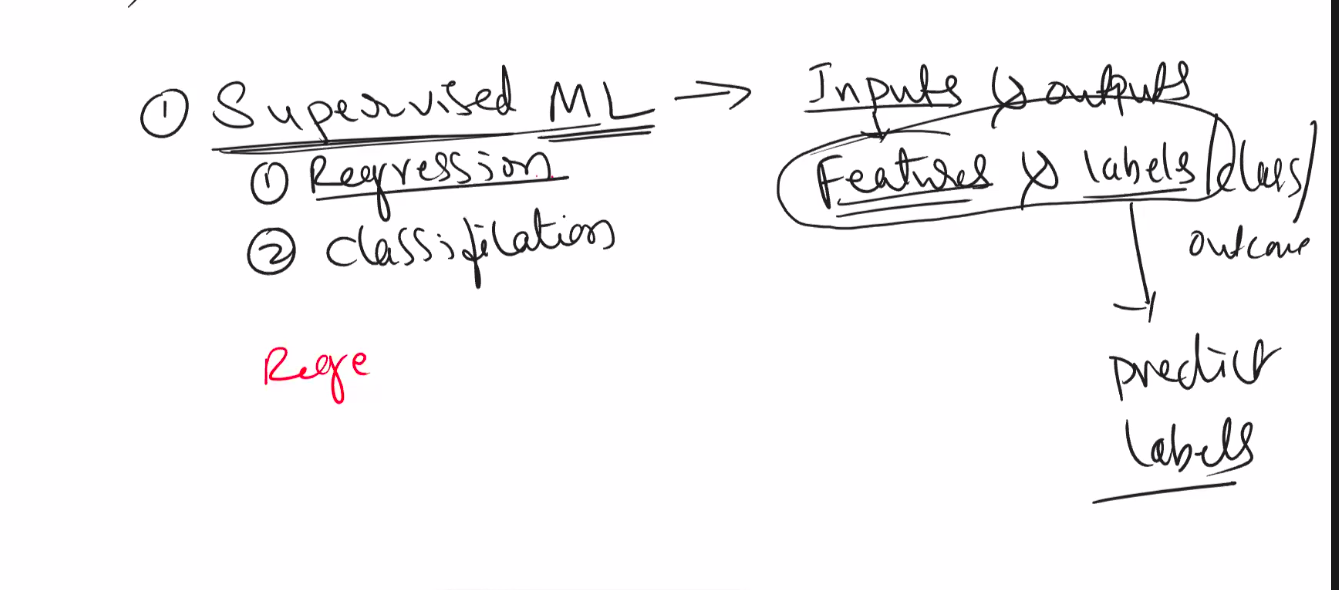 ① Supervised ML → Inputs & outputs
① Regression
② classification
Features & labels/class/
outcome
predict
labels
Rege